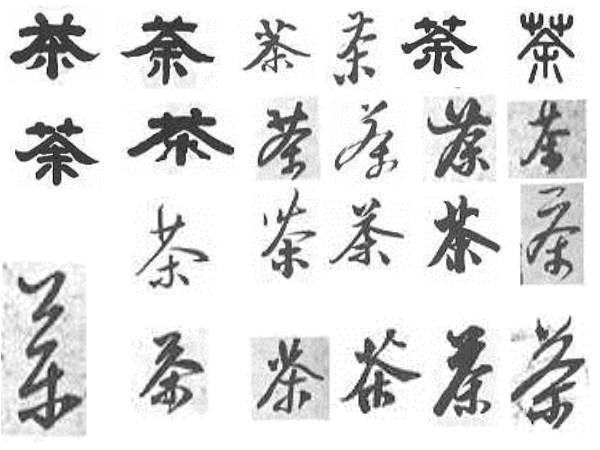 茶茶茶茶茶茶
茶茶茶茶茶茶
茶茶茶茶茶
茶茶茶茶茶茶